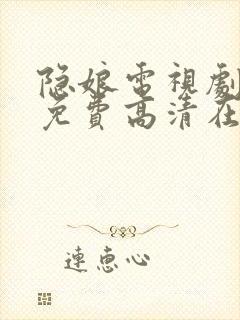 隐娘電視劇
免費高清在
連惠心